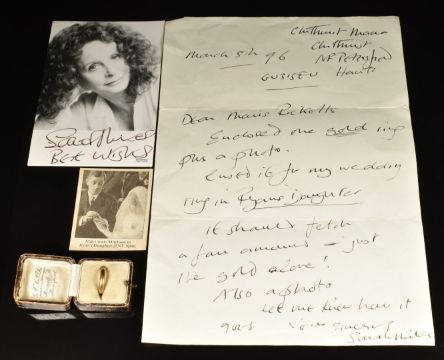 Sarah Miles
Best Wishes
Miles with Mitchum in
Ryan's Daughter
Chithurst Manor
Chithurst
Nr Petersfield
March 5th 96
GU31 5EU Hants
Dear Mavis Ricketts
Enclosed one gold ring
plus a photo.
I used it for my wedding
ring in Ryans Daughter
It should fetch
a fair amount – just
the gold alone!
Also a photo
Let me know how it
goes Yours sincerely
Sarah Miles